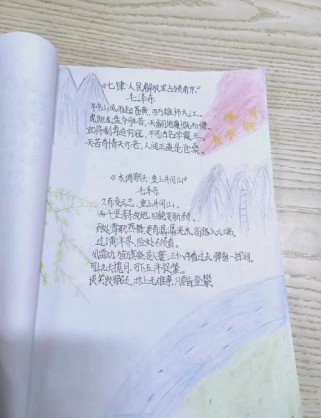 《七律·人民解放军占领南京》
毛泽东
钟山风雨起苍黄，百万雄师过大江。
虎踞龙盘今胜昔，天翻地覆慨而慷。
宜将剩勇追穷寇，不可沽名学霸王。
天若有情天亦老，人间正道是沧桑。
《水调歌头·重上井冈山》
毛泽东
久有凌云志，重上井冈山。
千里来寻故地，旧貌变新颜。
到处莺歌燕舞，更有潺潺流水，高路入云端。
过了黄洋界，险处不须看。
风雷动，旌旗奋，是人寰。三十八年过去，弹指一挥间。
可上九天揽月，可下五洋捉鳖，
谈笑凯歌还。世上无难事，只要肯登攀。